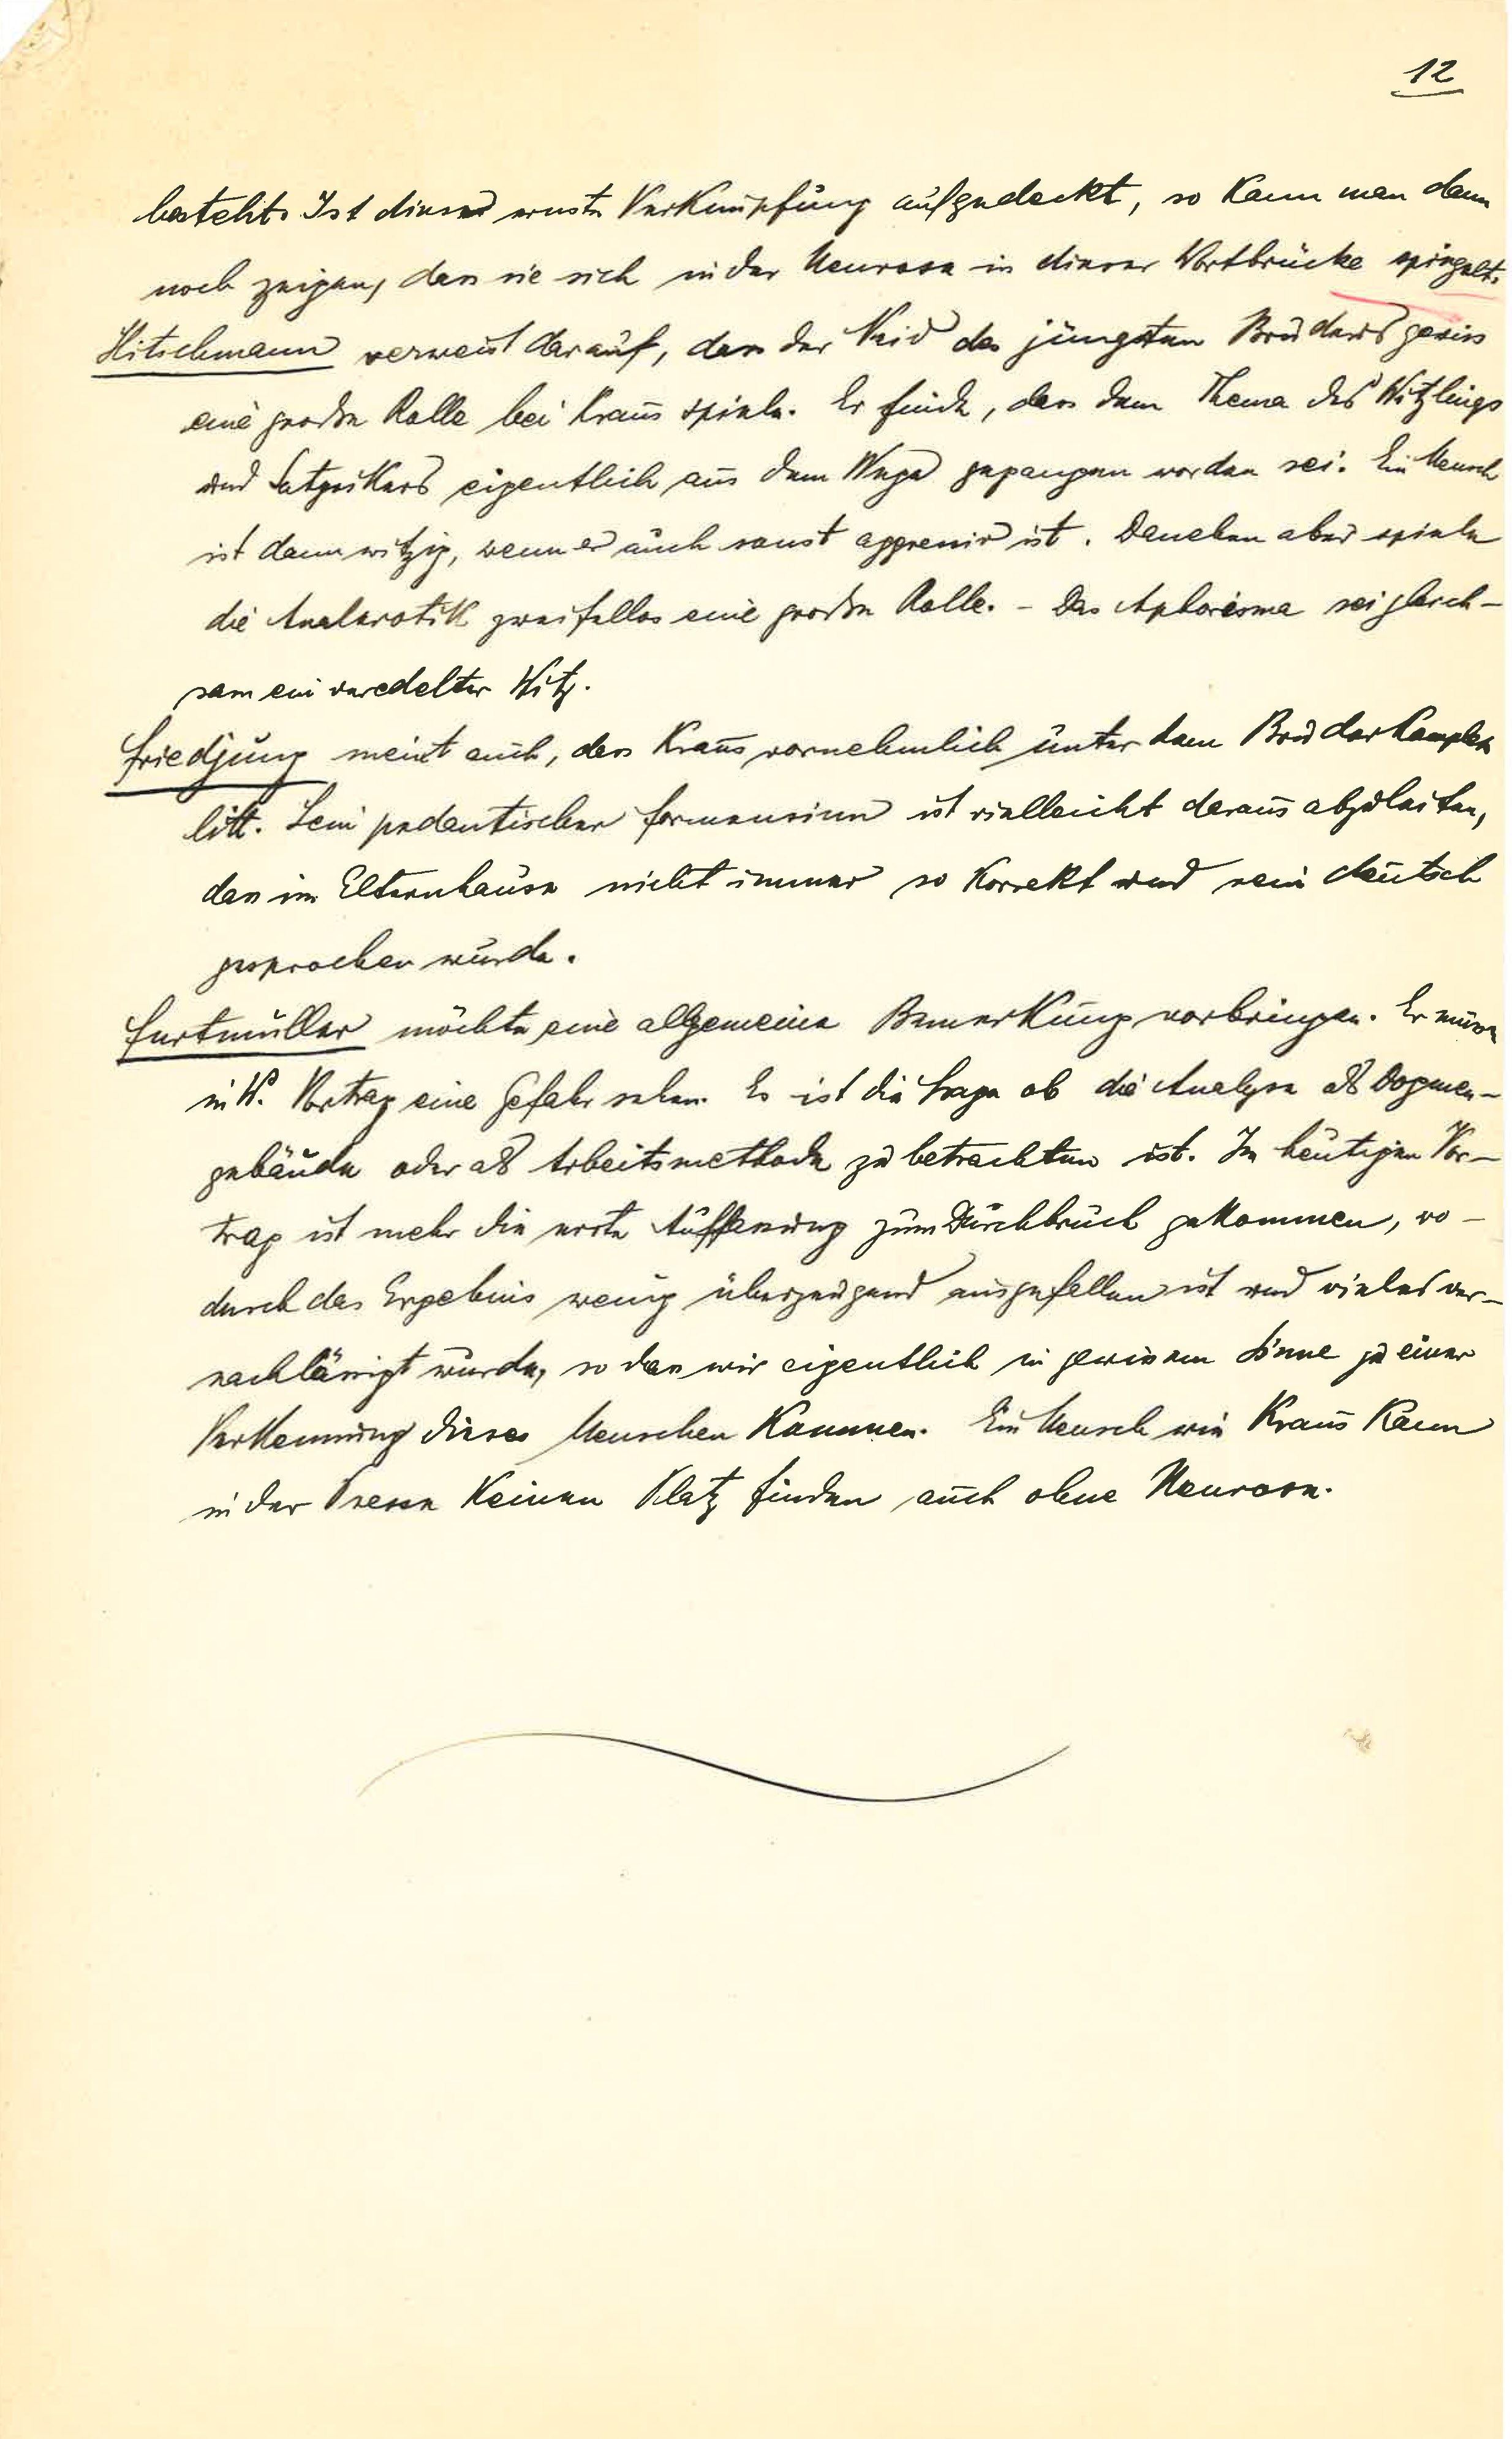 12
besteht. Ist diese erste Verknüpfung aufgedeckt, so kann man dann
noch zeigen, dass sie sich in der Neurose in dieser Wortbrücke spiegelt.
Hitschmann verweist darauf, dass der Neid des jüngsten Bruders gewiss
eine große Rolle bei Kraus spiele. Er finde, dass dem Thema des Witzlings
und Satyrikers eigentlich aus dem Wege gegangen worden sei. Ein Mensch
ist dann witzig, wenn er auch sonst aggressiv ist. Daneben aber spiele
die Analerotik zweifellos eine große Rolle. – Das Aphorisma sei gleich-
sam ein veredelter Witz.
Friedjung meint auch, dass Kraus vornehmlich unter dem Bruderkomplex
litt. Sein pedantischer Formensinn ist vielleicht daraus abzuleiten,
dass im Elternhause nicht immer so korrekt und rein deutsch
gesprochen wurde.
Furtmüller möchte eine allgemeine Bemerkung vorbringen. Er müsse
in W. Vortrag eine Gefahr sehen. Es ist die Frage ob die Analyse als Dogmen-
gebäude oder als Arbeitsmethode zu betrachten ist. Im heutigen Vor-
trag ist mehr die erste Auffassung zum Durchbruch gekommen, wo-
durch das Ergebnis wenig überzeugend ausgefallen ist und vieles ver-
nachlässigt wurde, so dass wir eigentlich in gewissem Sinne zu einer
Verkennung dieses Menschen kommen. Ein Mensch wie Kraus kann
in der Presse keinen Platz finden auch ohne Neurose.